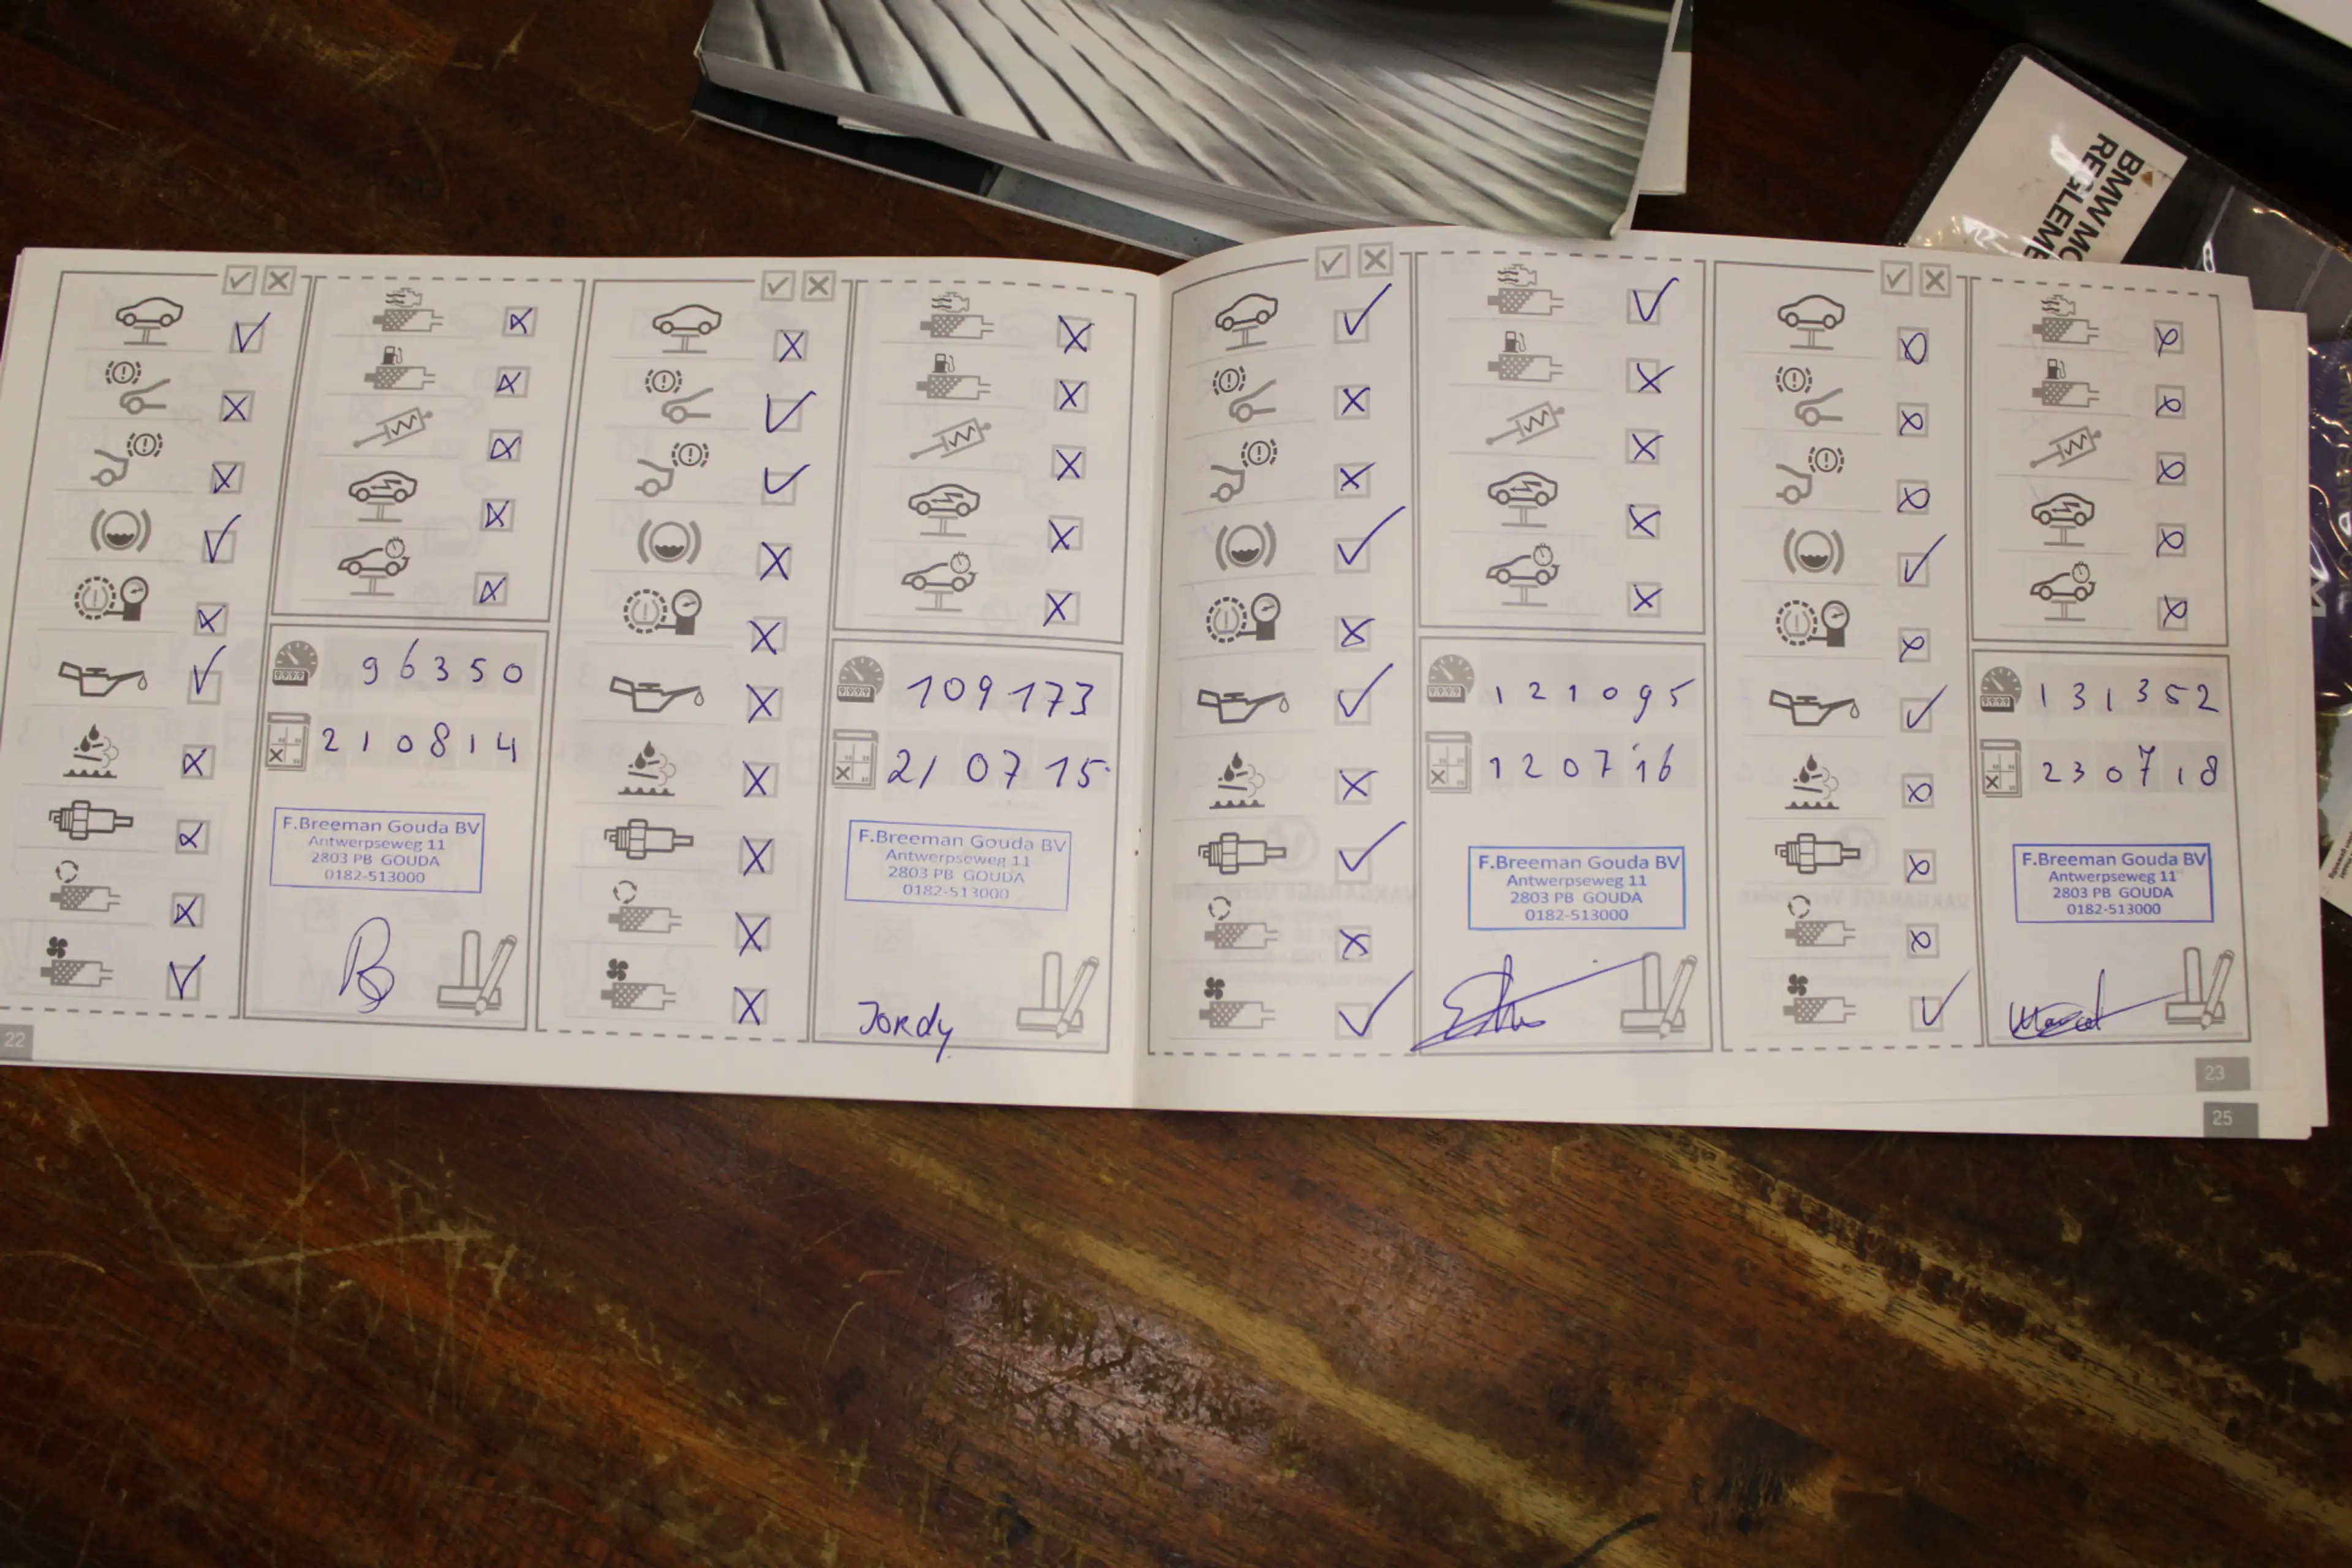 BMW MO
REGLEME
96350
210814
F.Breeman Gouda BV
Antwerpseweg 11
2803 PB GOUDA
0182-513000
22
109173
21 07 15
F.Breeman Gouda BV
Antwerpseweg 11
2803 PB GOUDA
0182-513000
Jordy
121095
120716
F.Breeman Gouda BV
Antwerpseweg 11
2803 PB GOUDA
0182-513000
131352
230718
F.Breeman Gouda BV
Antwerpseweg 11
2803 PB GOUDA
0182-513000
Marcel
23
25